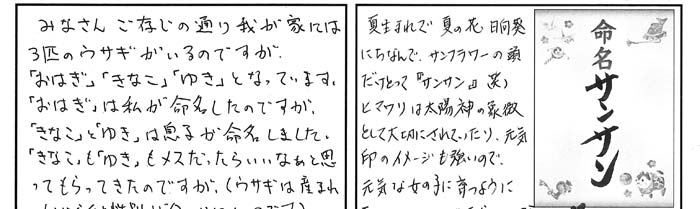 みなさん ご存じの通り 我が家には
3匹のウサギがいるのですが、
「おはぎ」「きなこ」「ゆき」となっています。
「おはぎ」は私が命名したのですが、
「きなこ」と「ゆき」は息子が命名しました。
「きなこ」も「ゆき」もメスだったらいいなぁと思
ってもらってきたのですが、(ウサギは産まれ
夏生まれで 夏の花 日向葵
にちなんで、サンフラワーの頭
だけとって『サンサン』笑)
ヒマワリは太陽神の象徴
として大切にされていたり、元気
印のイメージも強いので、
元気な女の子に育つように
命名
サンサン